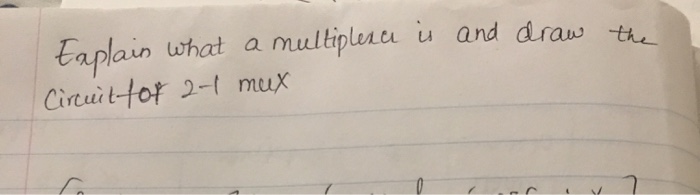 Explain what a multiplexer is and draw the
Circuit for 2-1 mux